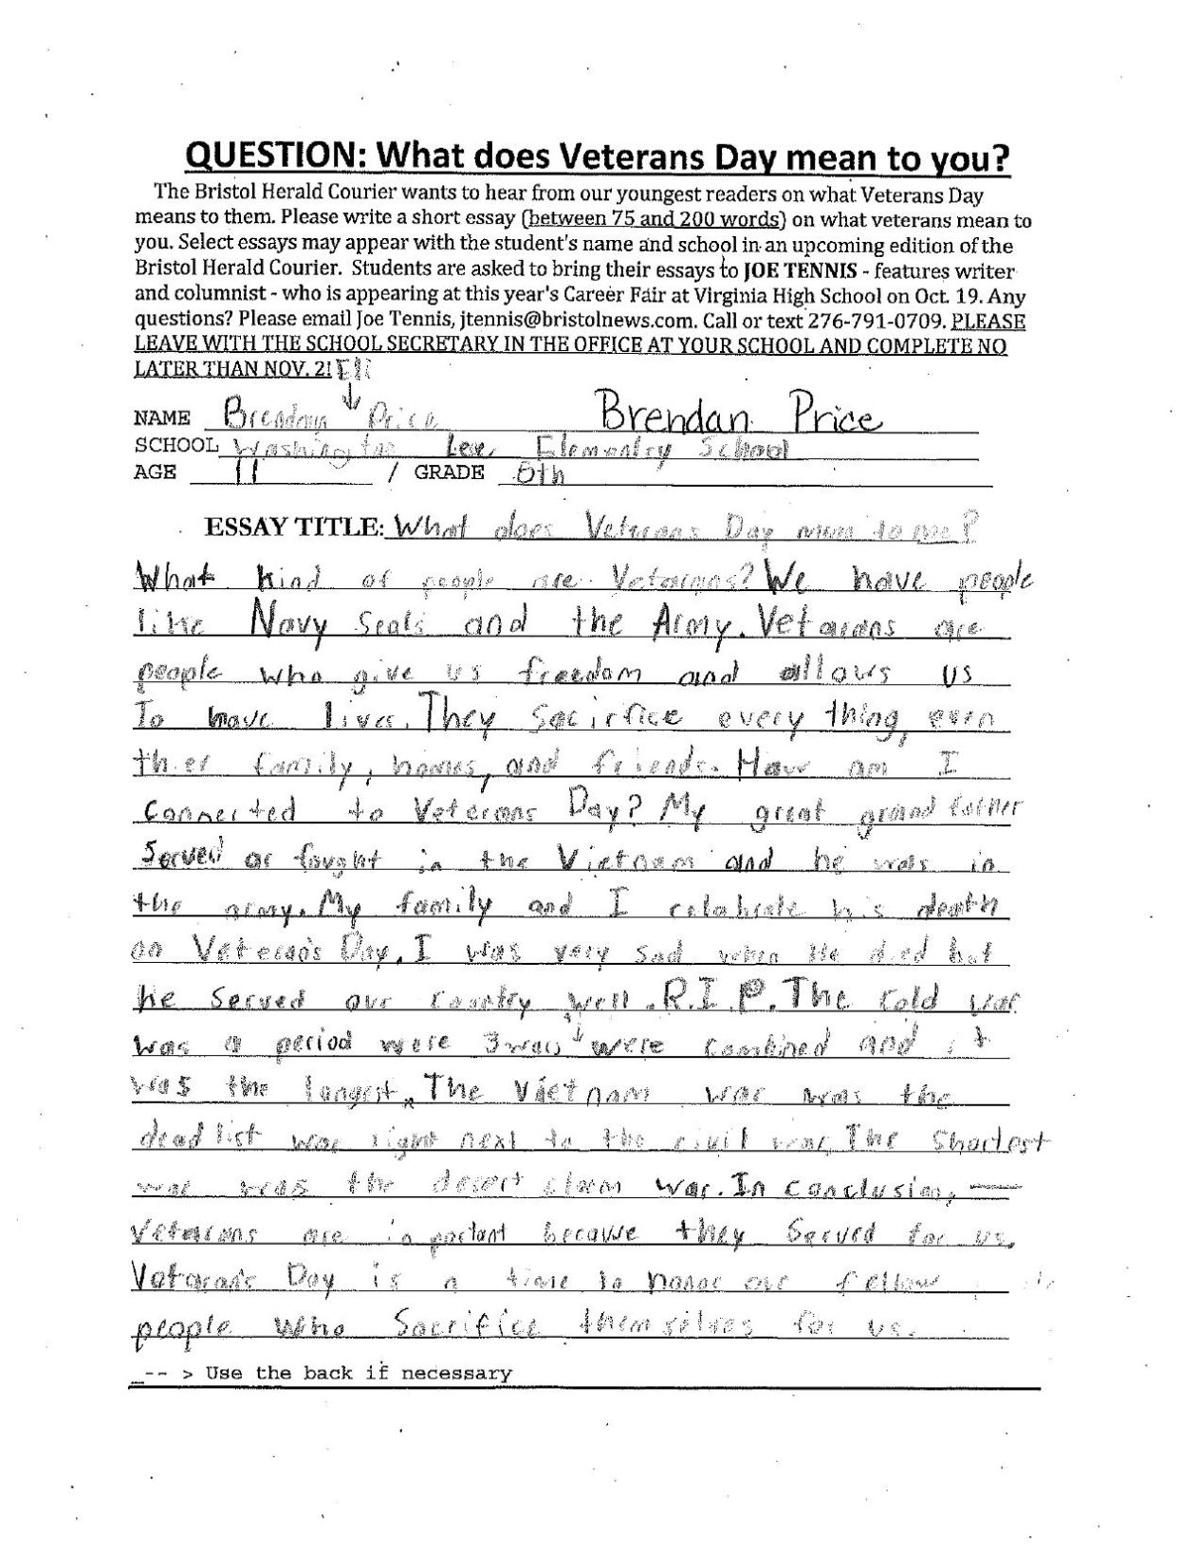 QUESTION: What does Veterans Day mean to you?
The Bristol Herald Courier wants to hear from our youngest readers on what Veterans Day
means to them. Please write a short essay (between 75 and 200 words) on what veterans mean to
you. Select essays may appear with the student's name and school in an upcoming edition of the
Bristol Herald Courier. Students are asked to bring their essays to JOE TENNIS - features writer
and columnist - who is appearing at this year's Career Fair at Virginia High School on Oct. 19. Any
questions? Please email Joe Tennis, jtennis@bristolnews.com. Call or text 276-791-0709. PLEASE
LEAVE WITH THE SCHOOL SECRETARY IN THE OFFICE AT YOUR SCHOOL AND COMPLETE NO
LATER THAN NOV. 2! Eli
NAME Brendan Price Brendan Price
SCHOOL Washington Lee Elementry School
AGE 11 / GRADE 6th
ESSAY TITLE: What does Veterans Day mean to me?
What kind of people are Vetarans? We have people
like Navy Seals and the Army. Vetarans are
people who give us freedom and allows us
To have lives. They Sacirfice every thing, even
thier family, homes, and friends. How am I
connected to Veterans Day? My great grand father
Served or fought in the Vietnam and he was in
the army. My family and I celabrate his death
on Veteran's Day. I was very sad when He died but
he served our country well. R.I.P. The cold war
was a period were 3 wars were combined and it
was the longest. The Vietnam war was the
deadlist war right next to the civil war. The Shortest
war was the desert storm war. In conclusion,
Vetarans are important because they Served for us.
Vetaran's Day is a time to honor our fellow
people who Sacrifice themselves for us.
-- > Use the back if necessary